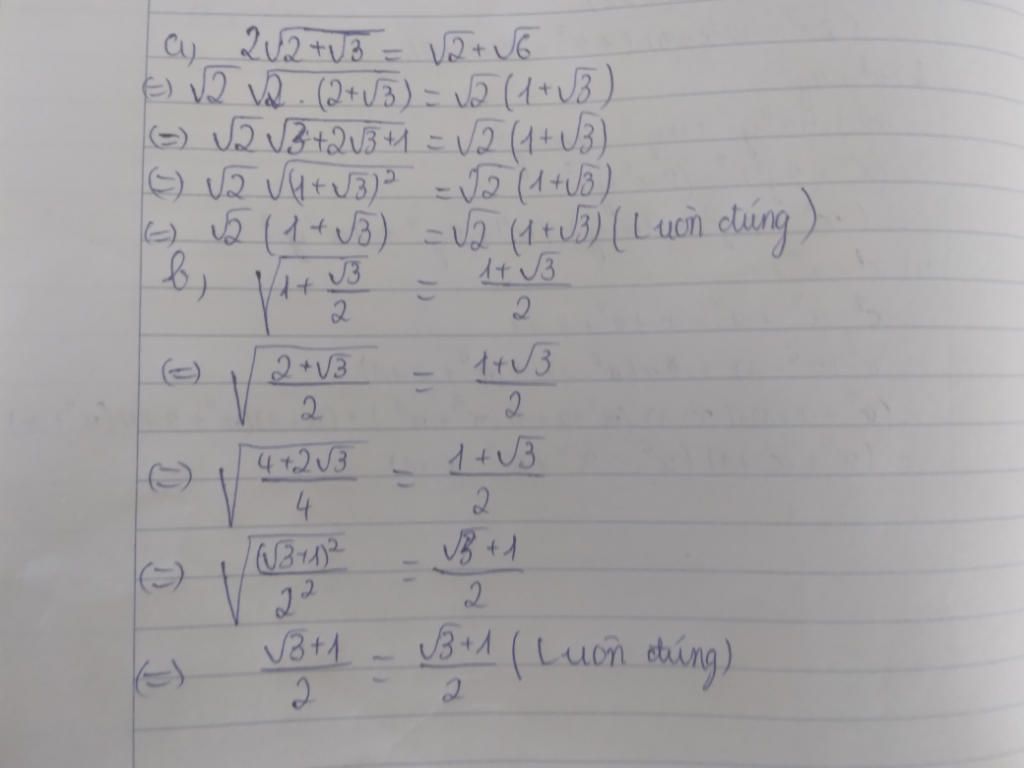 a, 2√(2+√3) = √2 + √6
(=) √2 √(2 . (2+√3)) = √2 (1+√3)
(=) √2 √(3+2√3+1) = √2 (1+√3)
(=) √2 √((1+√3)²) = √2 (1+√3)
(=) √2 (1+√3) = √2 (1+√3) (Luôn đúng)
b, √(1+√3/2) = (1+√3)/2
(=) √((2+√3)/2) = (1+√3)/2
(=) √((4+2√3)/4) = (1+√3)/2
(=) √((√3+1)²/2²) = (√3+1)/2
(=) (√3+1)/2 = (√3+1)/2 (Luôn đúng)